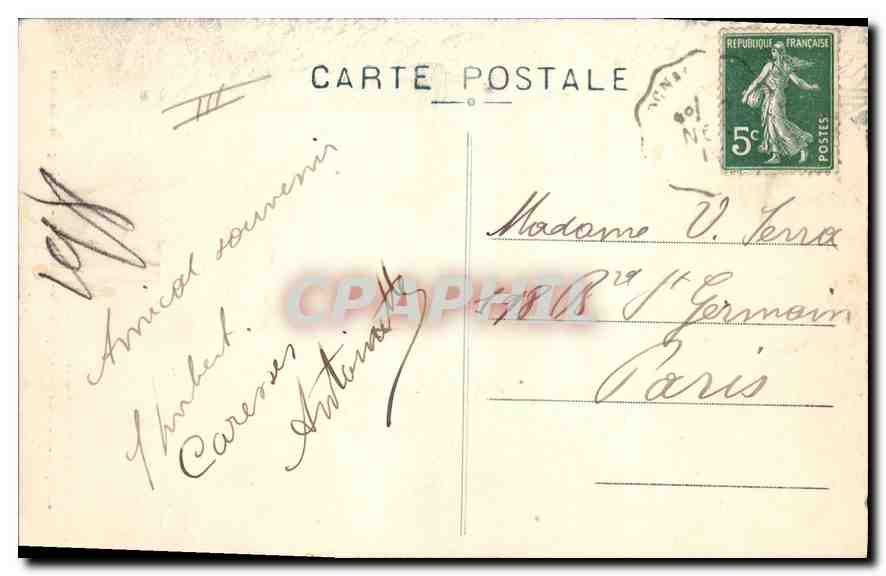 CARTE POSTALE
REPUBLIQUE FRANÇAISE
5c
POSTES
III
198
Amical souvenir
Hubert.
Caresses
Antoinette
Madame V. Serra
198 Bd St Germain
Paris
CPAPHIL